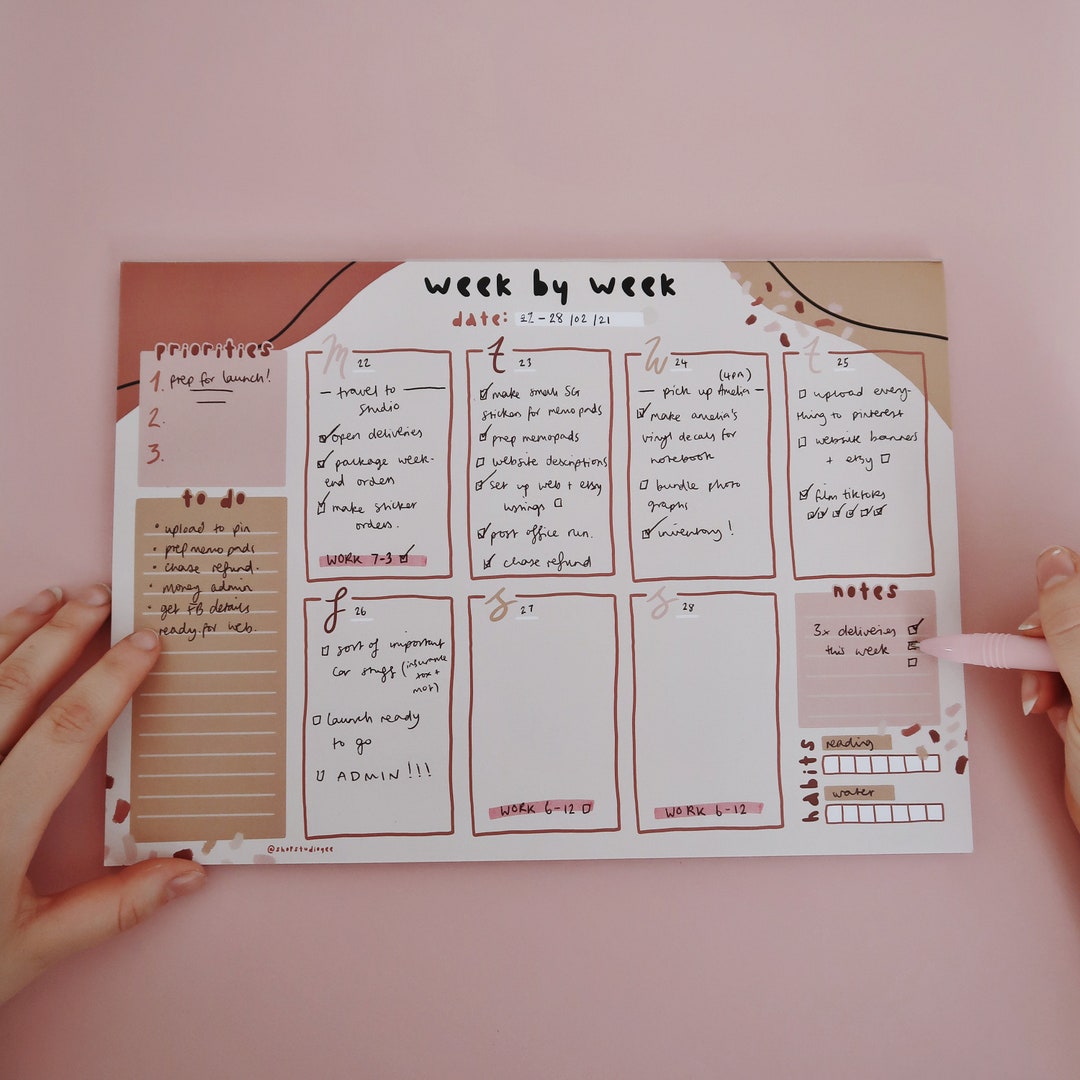 week by week
date: 22 - 28 / 02 / 21
priorities
1. prep for launch!
2.
3.
to do
• upload to pin
• prep memo pads
• chase refund.
• money admin
• get FB details
ready for web.
M 22
— travel to —
studio
open deliveries
package week-
end orders
make sticker
orders.
WORK 7-3
t 23
make small SG
sticker for memo pads
prep memopads
website descriptions
set up web + etsy
listings
post office run.
chase refund
W 24
(4pm)
— pick up Amelia —
make amelia's
vinyl decals for
notebook
bundle photo
graphs
inventory!
t 25
upload every-
thing to pinterest
website banners
+ etsy
film tiktoks
f 26
sort of important
car stuff (insurance
tax +
mot)
launch ready
to go
ADMIN!!!
s 27
WORK 6-12
s 28
WORK 6-12
notes
3x deliveries
this week
habits
reading
water
@shopstudiogee